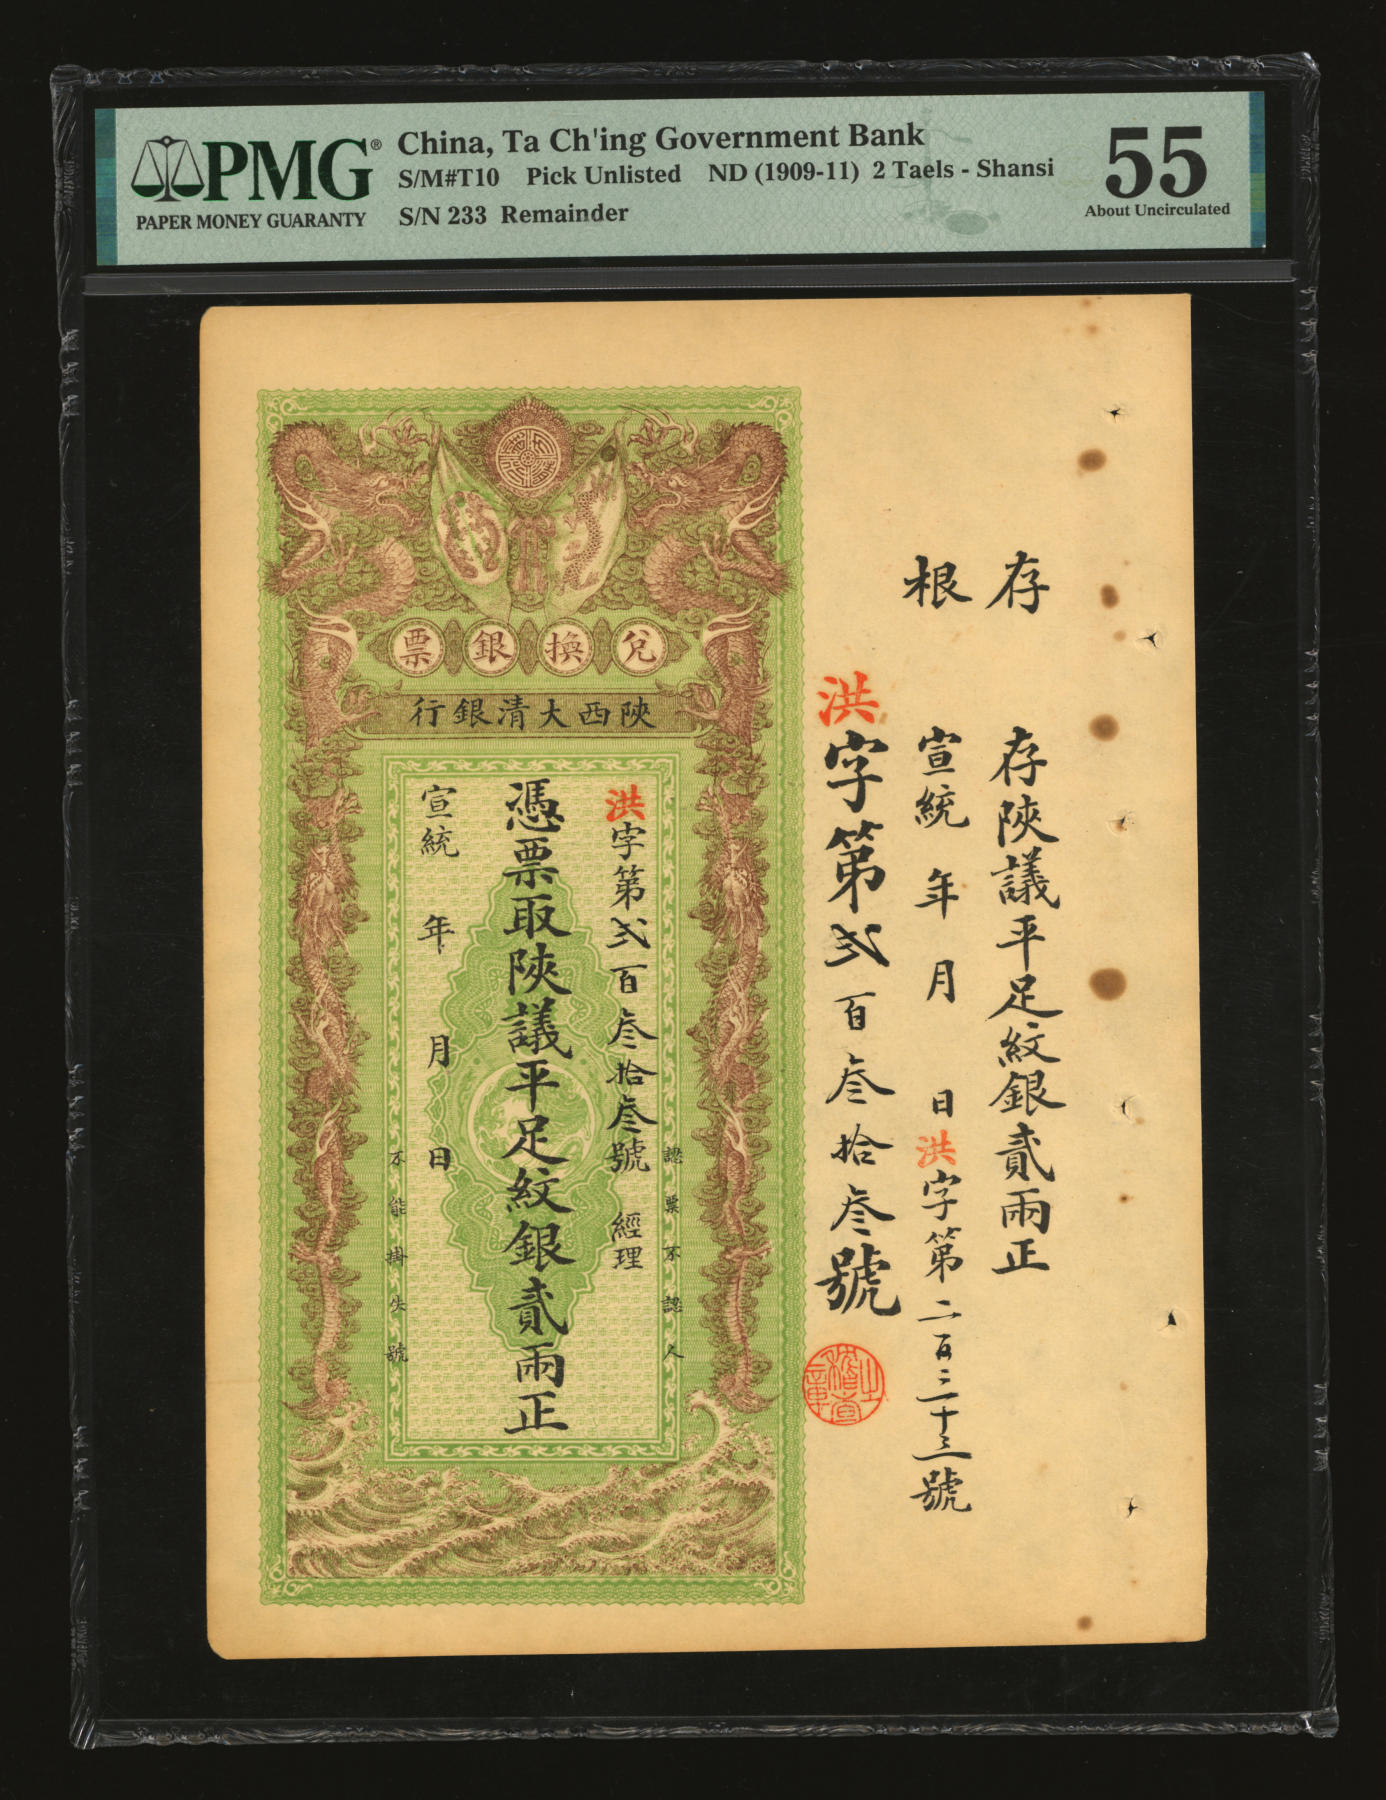 PMG®
PAPER MONEY GUARANTY
China, Ta Ch'ing Government Bank
S/M#T10 Pick Unlisted ND (1909-11) 2 Taels - Shansi
S/N 233 Remainder
55
About Uncirculated
存根
存陝議平足紋銀貳兩正
宣統 年 月 日 洪字第二百三十三號
洪字第弍百叄拾叄號
稽查之章
兌換銀票
陝西大清銀行
認票不認人
洪字第弍百叄拾叄號 經理
憑票取陝議平足紋銀貳兩正
宣統 年 月 日
不能掛失號